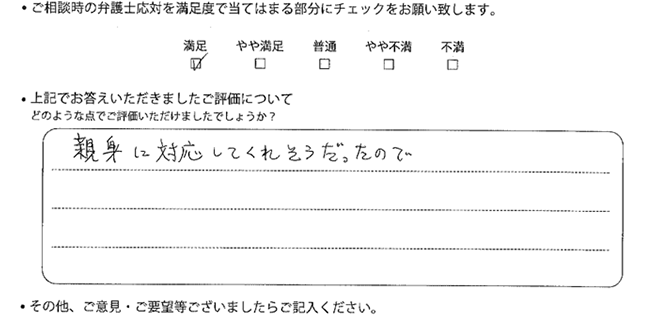 • ご相談時の弁護士応対を満足度で当てはまる部分にチェックをお願い致します。
満足 やや満足 普通 やや不満 不満
☑ □ □ □ □
• 上記でお答えいただきましたご評価について
どのような点でご評価いただけましたでしょうか？
親身に対応してくれそうだったので
• その他、ご意見・ご要望等ございましたらご記入ください。